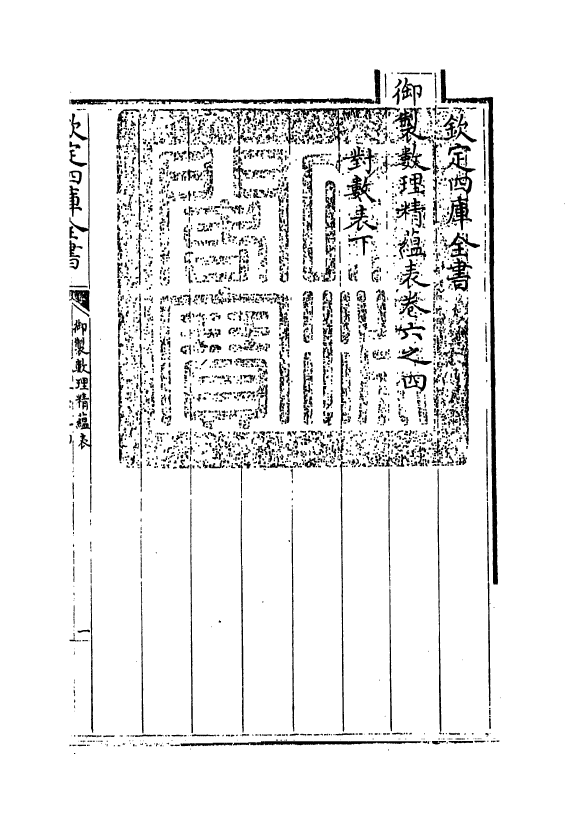 欽定四庫全書
御製數理精蘊表卷六之四
對數表下
欽定四庫全書
御製數理精蘊表
一